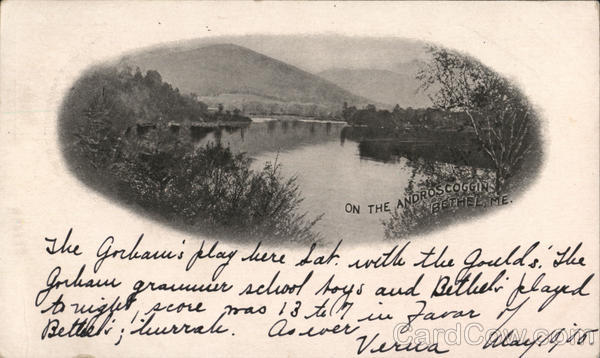 ON THE ANDROSCOGGIN
BETHEL, ME.
The Gorham's play here Sat. with the Goulds'. The
Gorham grammer school boys and Bethel's played
to night, score was 13 to 7 in favor of
Bethel's; hurrah. As ever
Verna May 10 '05
CardCow.com